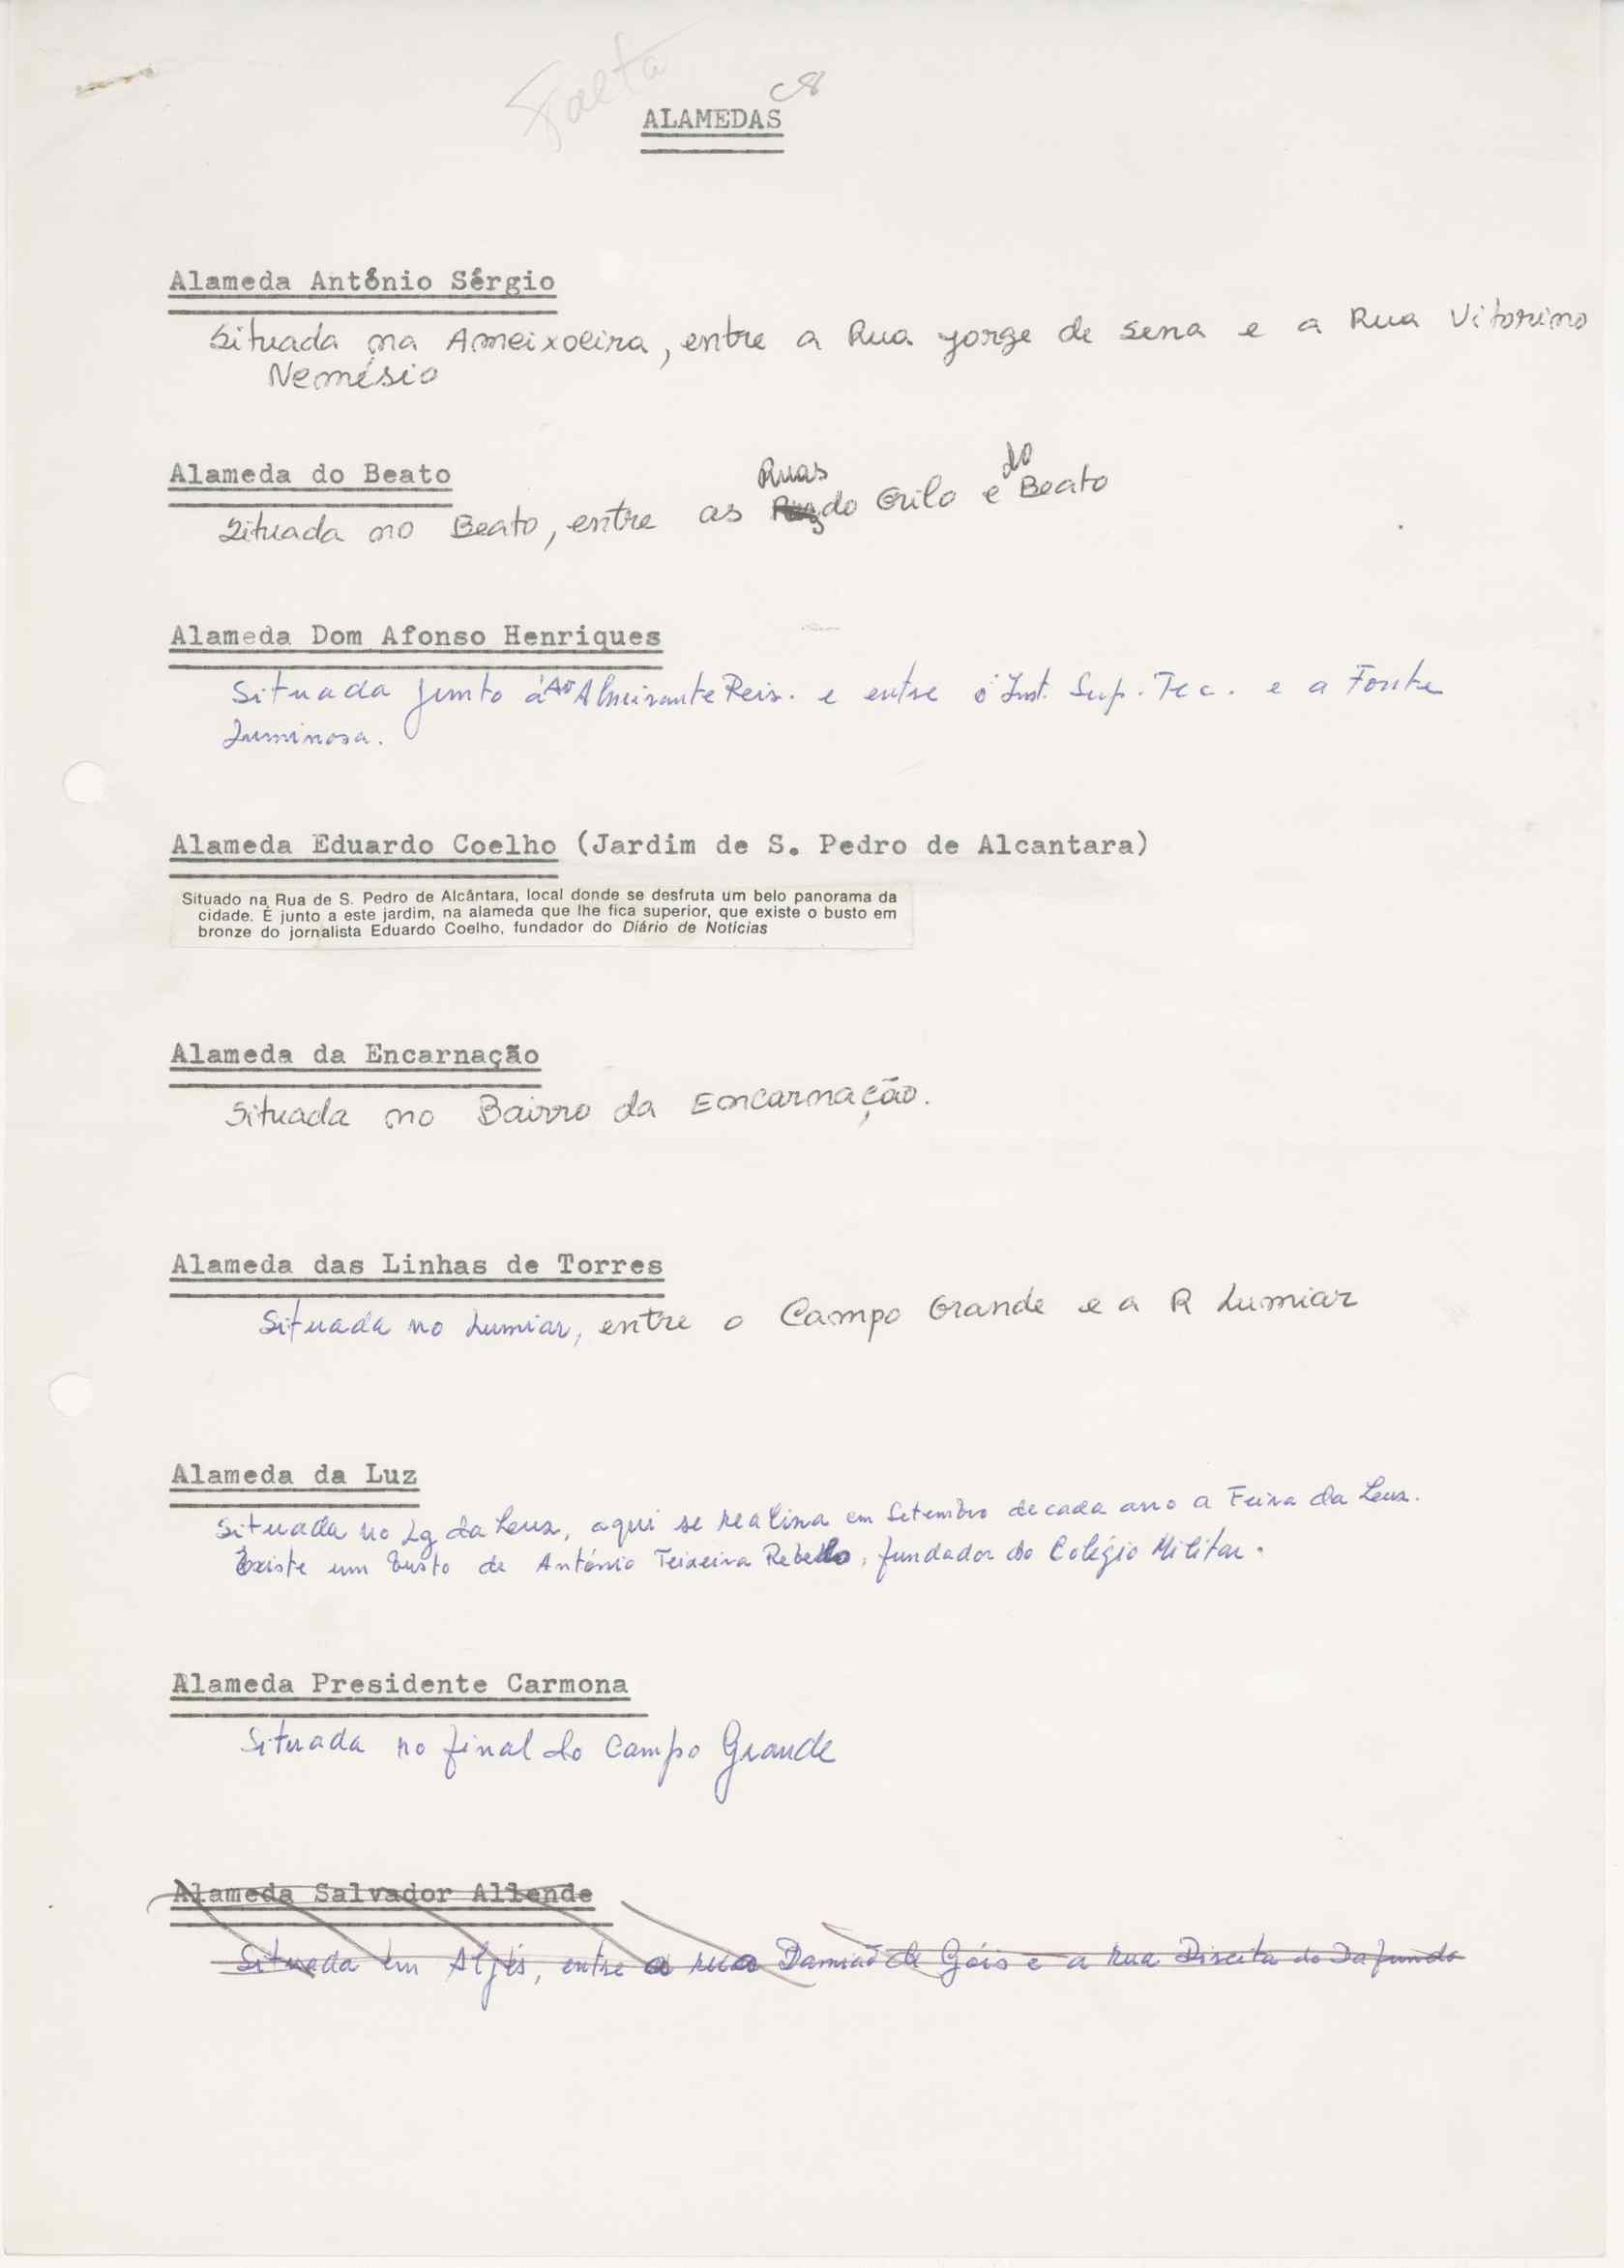 Falta
ALAMEDAS
Alameda António Sérgio
Situada na Ameixoeira, entre a Rua Jorge de Sena e a Rua Vitorino
Nemésio
Alameda do Beato
Situada no Beato, entre as Ruas do Grilo e do Beato
Alameda Dom Afonso Henriques
Situada junto à Av Almirante Reis. e entre o Inst. Sup. Tec. e a Fonte
Luminosa.
Alameda Eduardo Coelho (Jardim de S. Pedro de Alcantara)
Situado na Rua de S. Pedro de Alcântara, local donde se desfruta um belo panorama da
cidade. É junto a este jardim, na alameda que lhe fica superior, que existe o busto em
bronze do jornalista Eduardo Coelho, fundador do Diário de Notícias
Alameda da Encarnação
Situada no Bairro da Encarnação.
Alameda das Linhas de Torres
Situada no Lumiar, entre o Campo Grande e a R Lumiar
Alameda da Luz
Situada no Lg da Luz, aqui se realiza em Setembro de cada ano a Feira da Luz.
Existe um busto de António Teixeira Rebello, fundador do Colégio Militar.
Alameda Presidente Carmona
Situada no final do Campo Grande
Alameda Salvador Allende
Situada em Algés, entre a rua Damião de Góis e a rua Direita do Dafundo